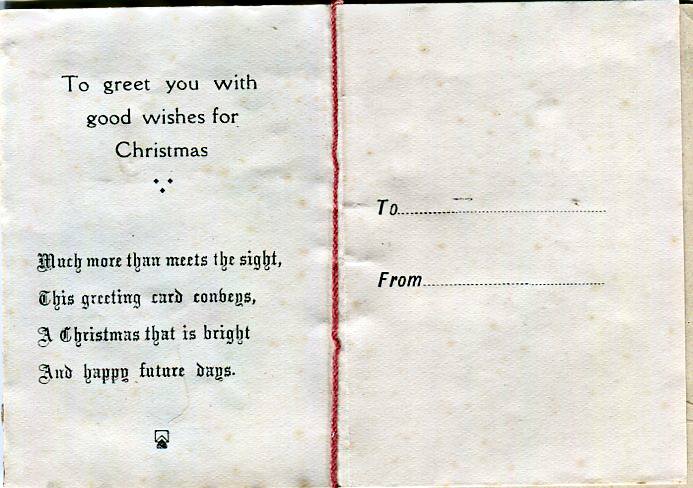 To greet you with
good wishes for
Christmas
Much more than meets the sight,
This greeting card conveys,
A Christmas that is bright
And happy future days.
To
From